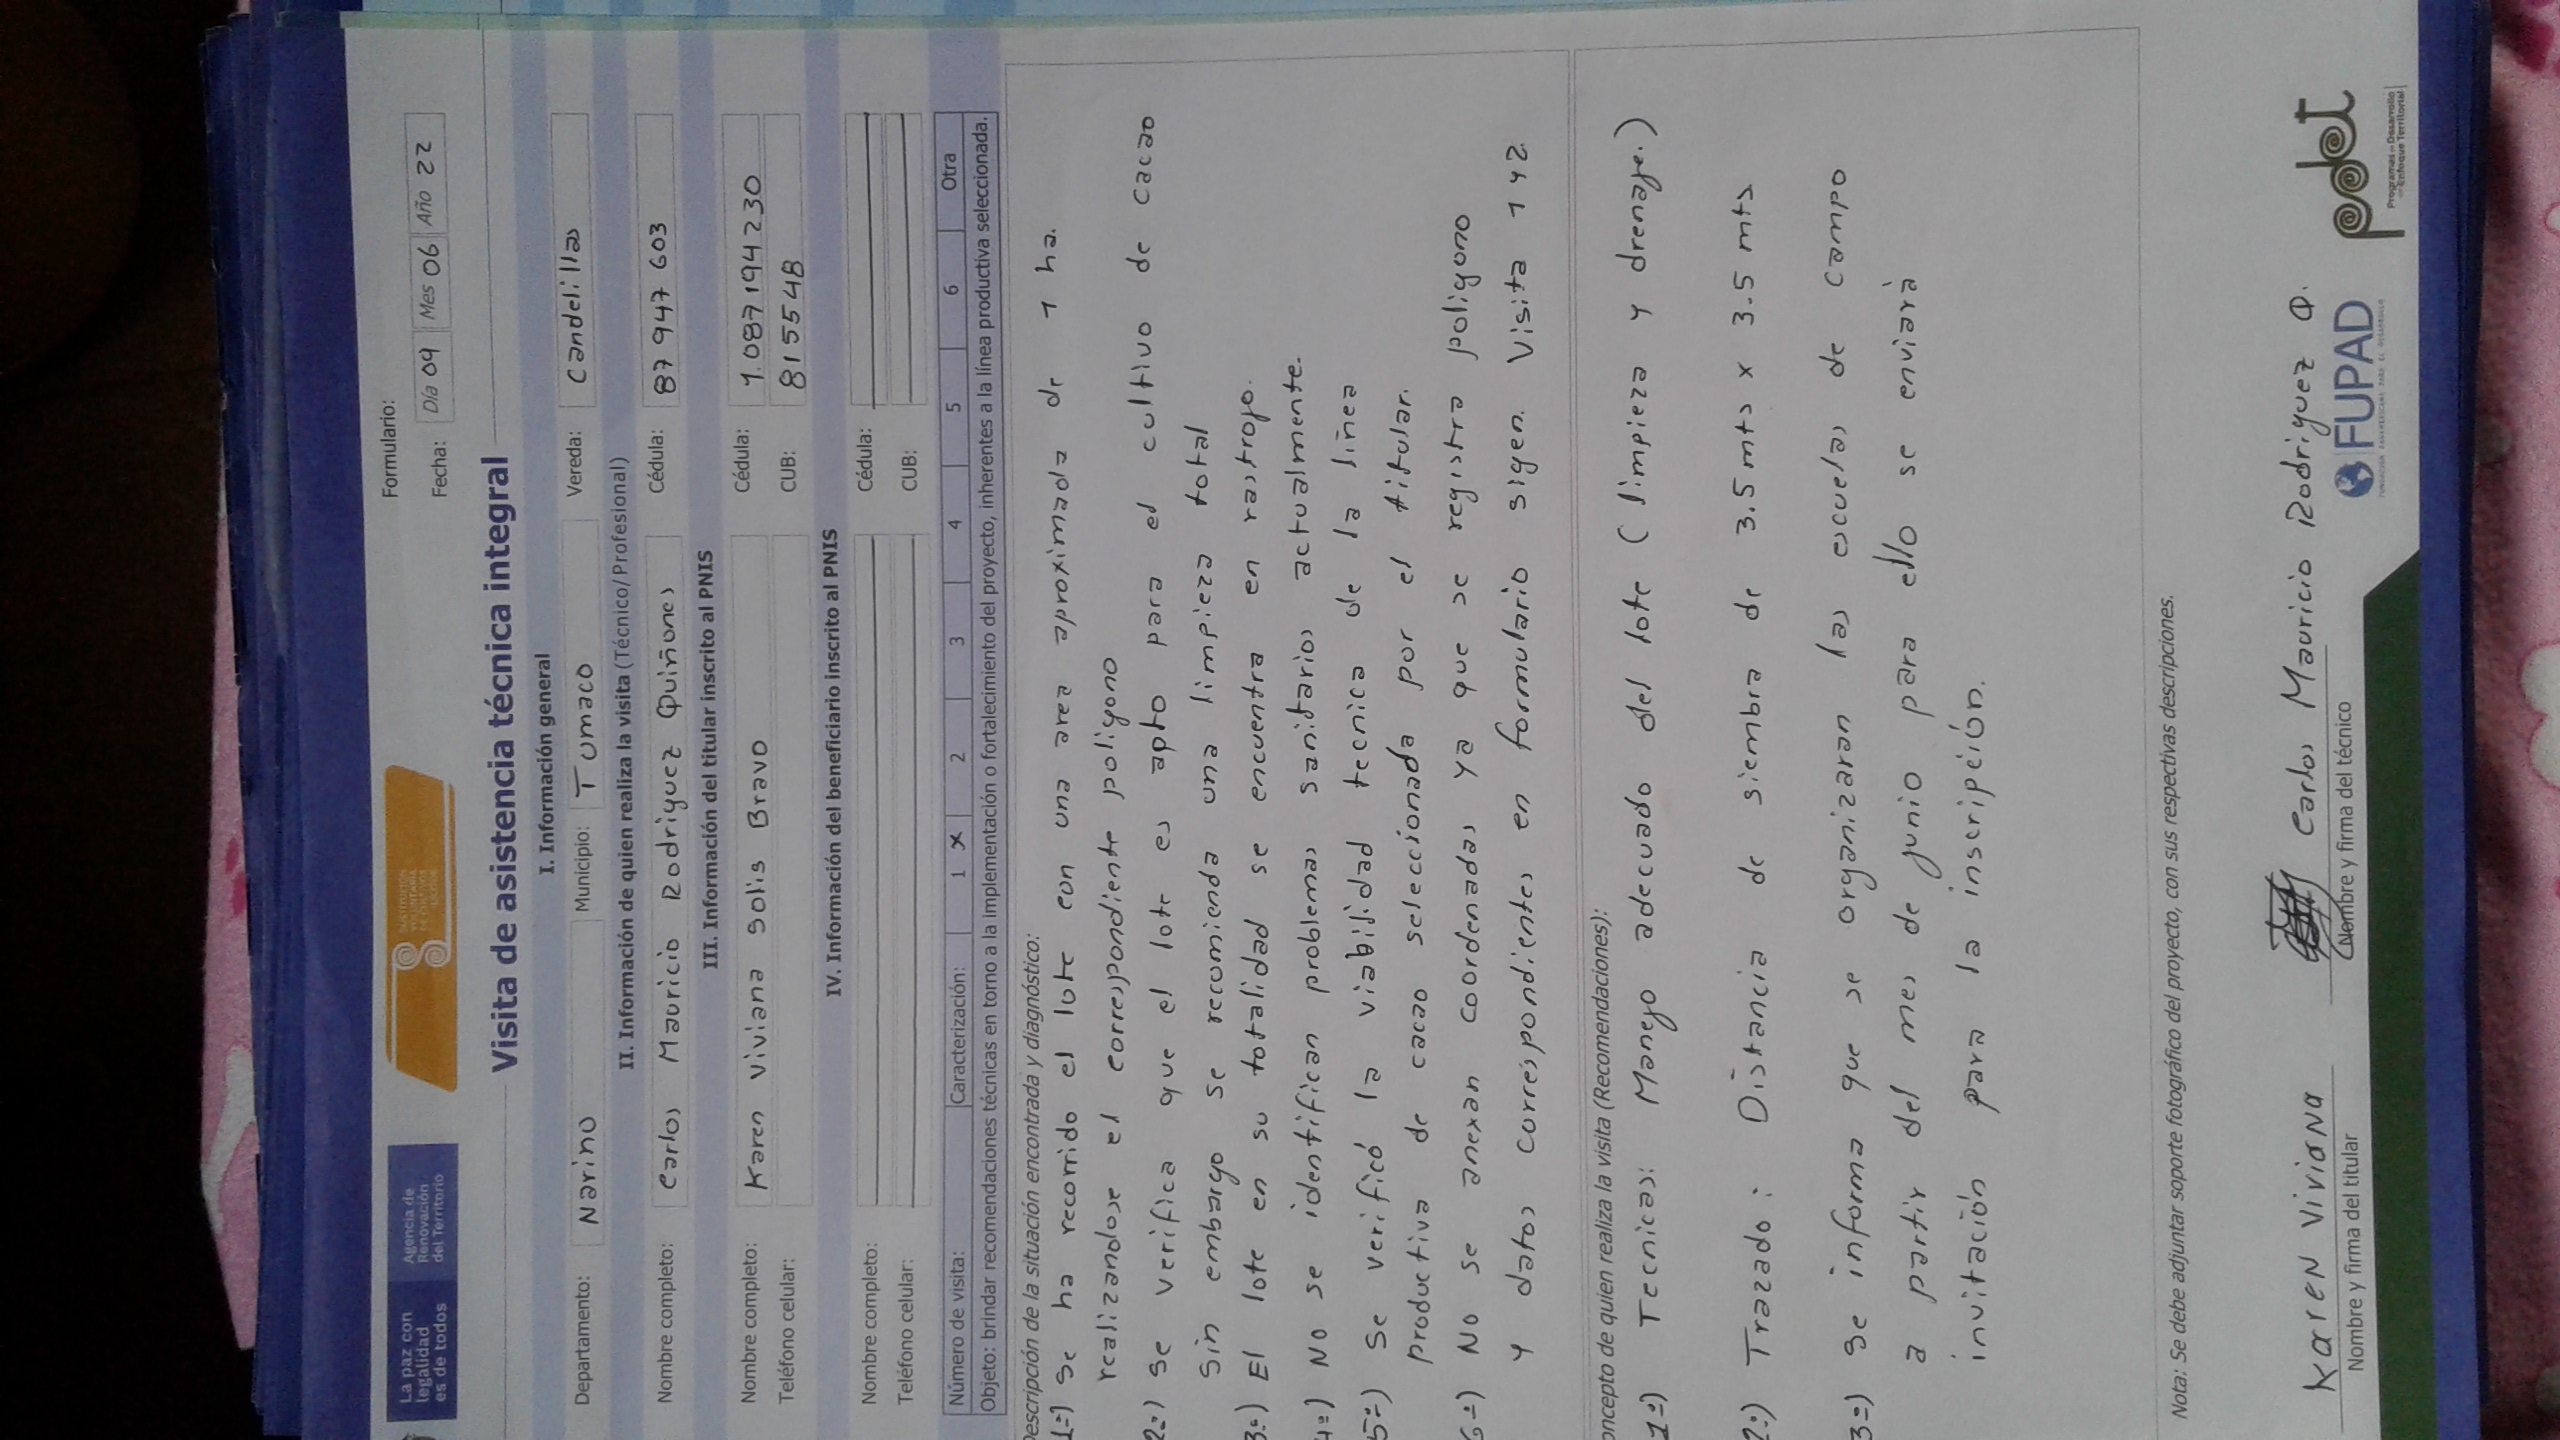 La paz con
legalidad
es de todos
Agencia de
Renovación
del Territorio
SUSTITUCIÓN
VOLUNTARIA
DE CULTIVOS
ILÍCITOS
Formulario:
Fecha: Día 09 Mes 06 Año 22
Visita de asistencia técnica integral
I. Información general
Departamento: Narino Municipio: Tumaco Vereda: Candelillas
II. Información de quien realiza la visita (Técnico/Profesional)
Nombre completo: Carlos Mauricio Rodriguez Quiñones Cédula: 87 947 603
III. Información del titular inscrito al PNIS
Nombre completo: Karen Viviana Solis Bravo Cédula: 1.087194230
Teléfono celular: CUB: 8155548
IV. Información del beneficiario inscrito al PNIS
Nombre completo: Cédula:
Teléfono celular: CUB:
Número de visita: Caracterización: 1 X 2 3 4 5 6 Otra
Objeto: brindar recomendaciones técnicas en torno a la implementación o fortalecimiento del proyecto, inherentes a la línea productiva seleccionada.
Descripción de la situación encontrada y diagnóstico:
1=) Se ha recorrido el lote con una area aproximada de 1 ha.
realizandose el correspondiente poligono
2=) Se verifica que el lote es apto para el cultivo de cacao
Sin embargo se recomienda una limpieza total
3=) El lote en su totalidad se encuentra en rastrojo.
4=) No se identifican problemas sanitarios actualmente.
5=) Se verificó la viabilidad tecnica de la liñea
productiva de cacao seleccionada por el titular.
6=) No se anexan coordenadas ya que se registra poligono
y datos correspondientes en formulario sigen. Visita 1 y 2
oncepto de quien realiza la visita (Recomendaciones):
1=) Tecnicas: Manejo adecuado del lote (limpieza y drenaje.)
2=) Trazado: Distancia de siembra de 3.5 mts x 3.5 mts
3=) Se informa que se organizaran las escuelas de campo
a partir del mes de junio para ello se enviarà
invitación para la inscripción.
Nota: Se debe adjuntar soporte fotográfico del proyecto, con sus respectivas descripciones.
Karen Viviana Carlos Mauricio Rodriguez Q.
Nombre y firma del titular Nombre y firma del técnico
FUPAD
FUNDACIÓN PANAMERICANA PARA EL DESARROLLO
pdet
Programas de Desarrollo
con Enfoque Territorial